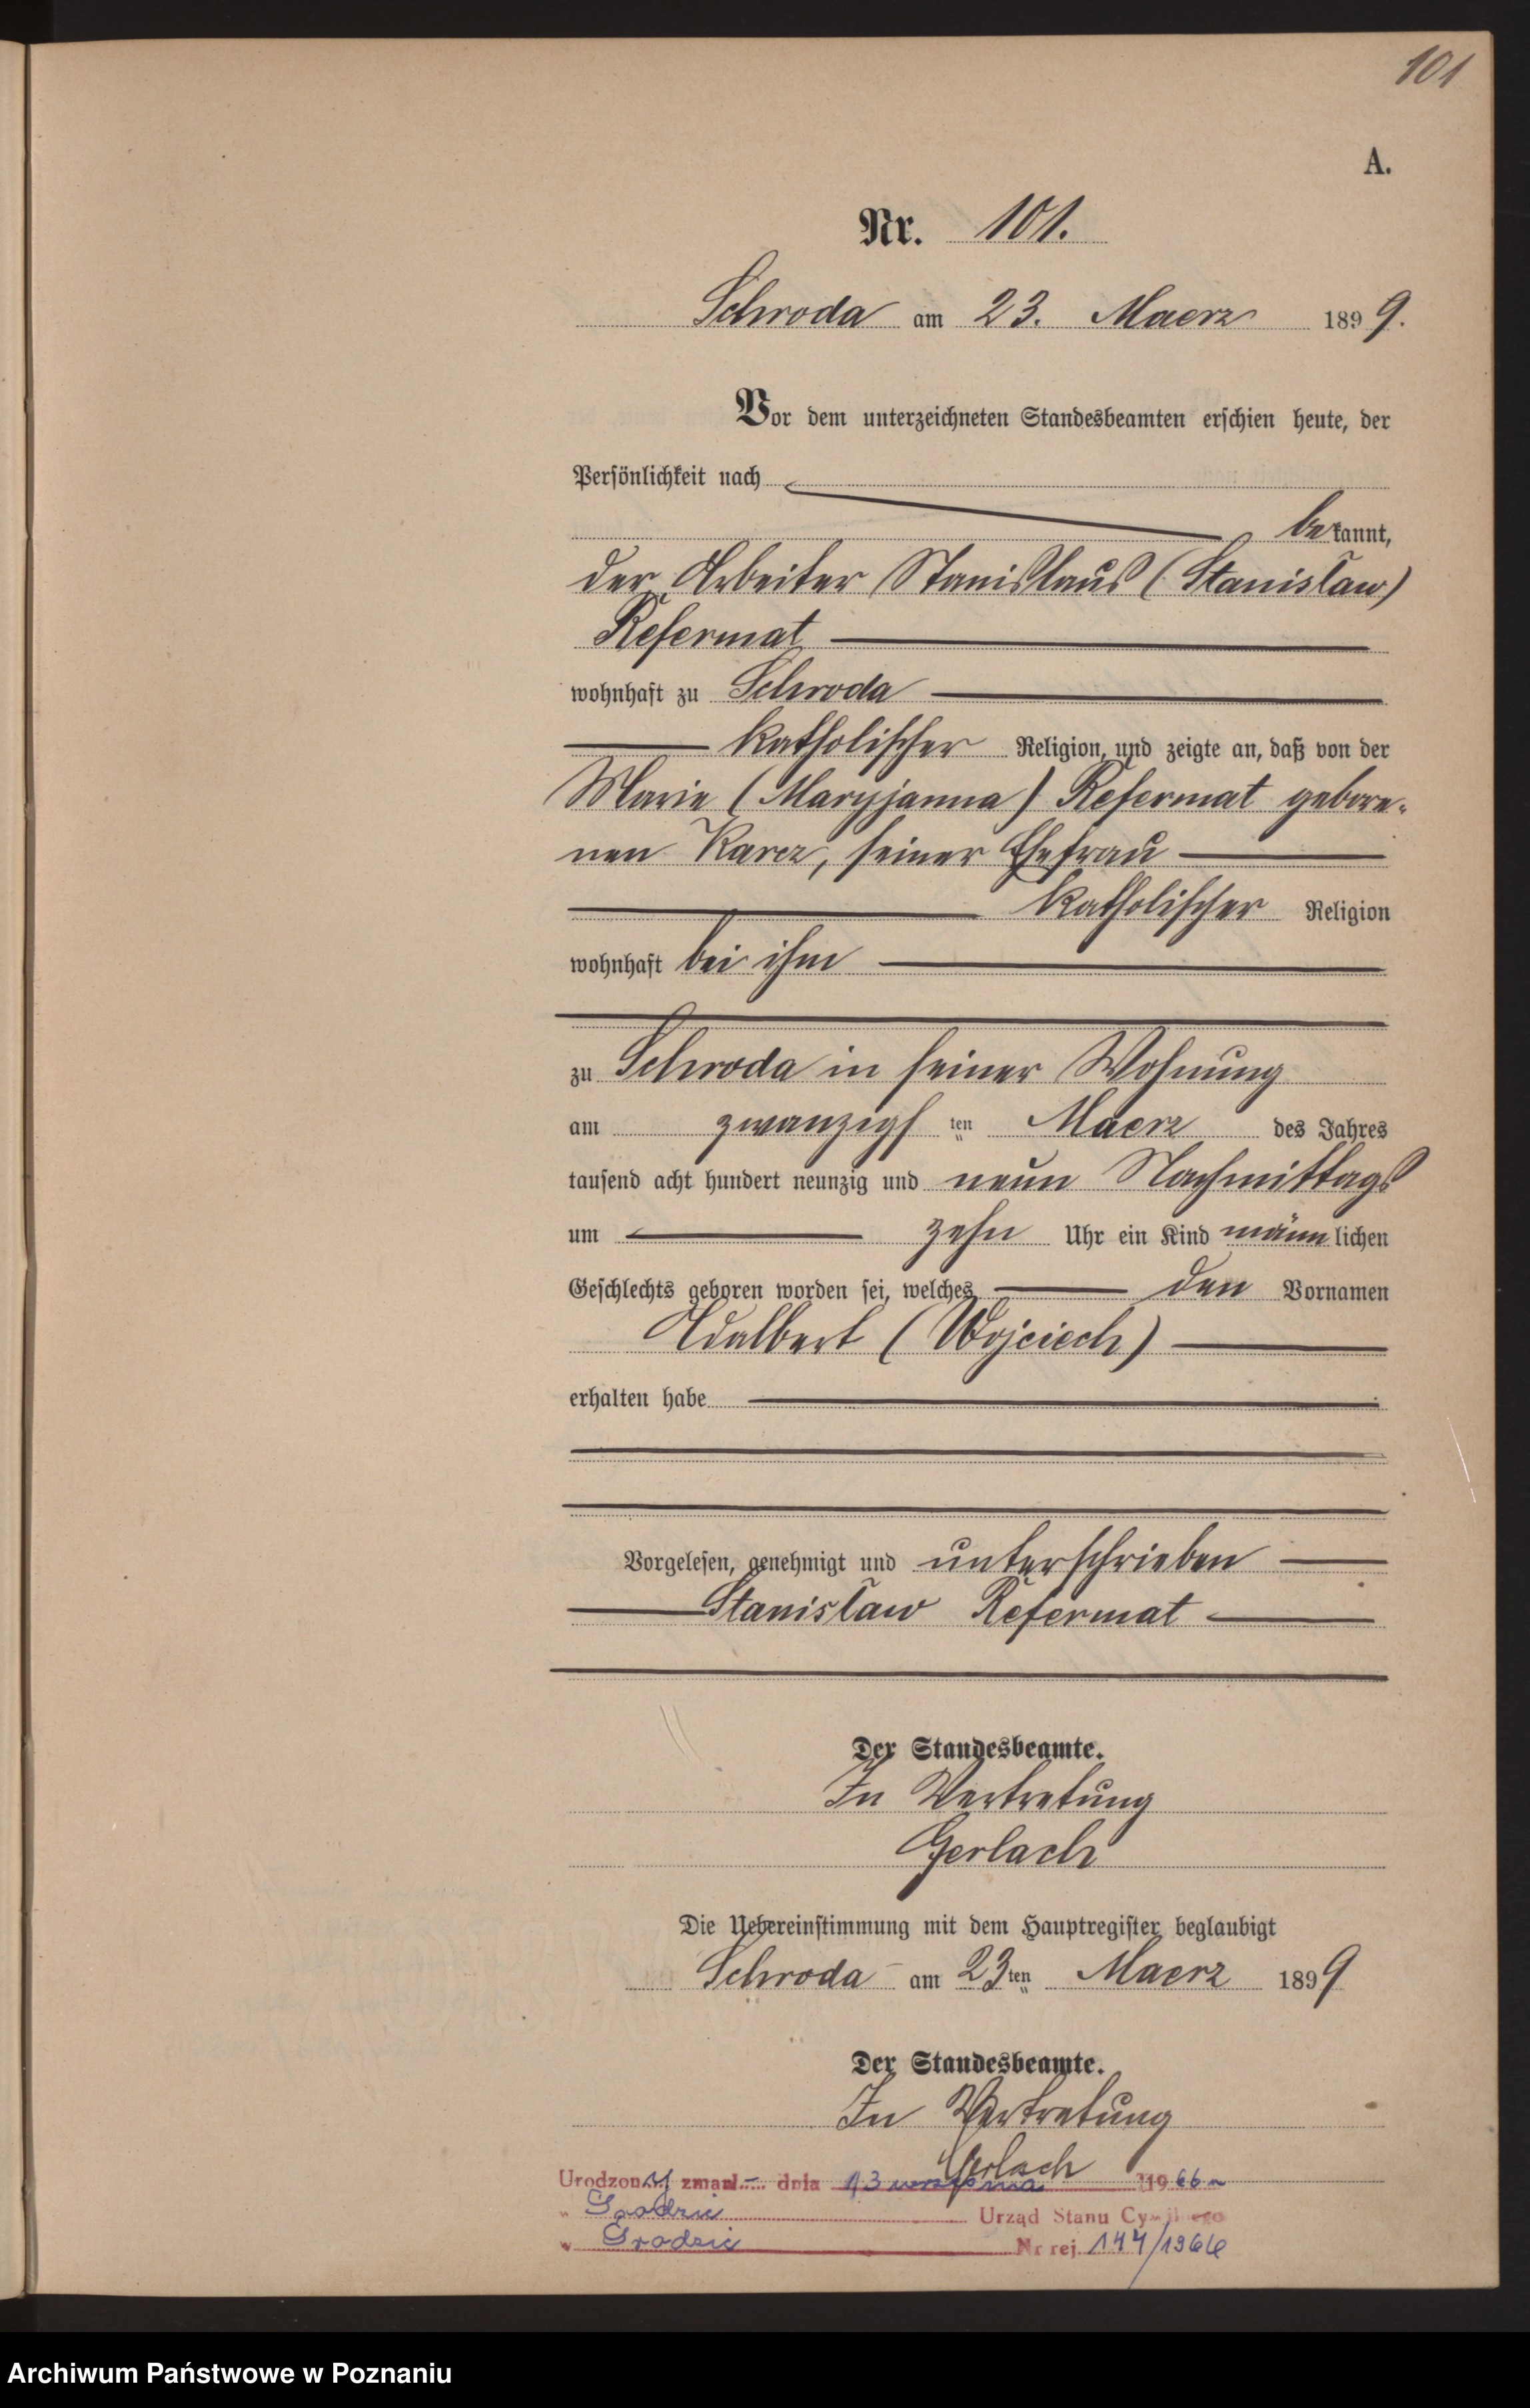 101
A.
Nr. 101.
Schroda am 23. Maerz 1899.
Vor dem unterzeichneten Standesbeamten erschien heute, der
Persönlichkeit nach
bekannt,
der Arbeiter Stanislaus (Stanisław)
Refermat
wohnhaft zu Schroda
katholischer Religion, und zeigte an, daß von der
Marie (Maryjanna) Refermat gebore-
nen Karcz, seiner Ehefrau
katholischer Religion
wohnhaft bei ihm
zu Schroda in seiner Wohnung
am zwanzigsten Maerz des Jahres
tausend acht hundert neunzig und neun Nachmittags
um zehn Uhr ein Kind männlichen
Geschlechts geboren worden sei, welches den Vornamen
Adalbert (Wojciech)
erhalten habe
Vorgelesen, genehmigt und unterschrieben
Stanisław Refermat
Der Standesbeamte.
In Vertretung
Gerlach
Die Uebereinstimmung mit dem Hauptregister beglaubigt
Schroda am 23ten Maerz 1899
Der Standesbeamte.
In Vertretung
Gerlach
Urodzony zmarł dnia 13 września 1966
w Grodzic Urząd Stanu Cywilnego
w Grodzic Nr rej. 144/1966
Archiwum Państwowe w Poznaniu